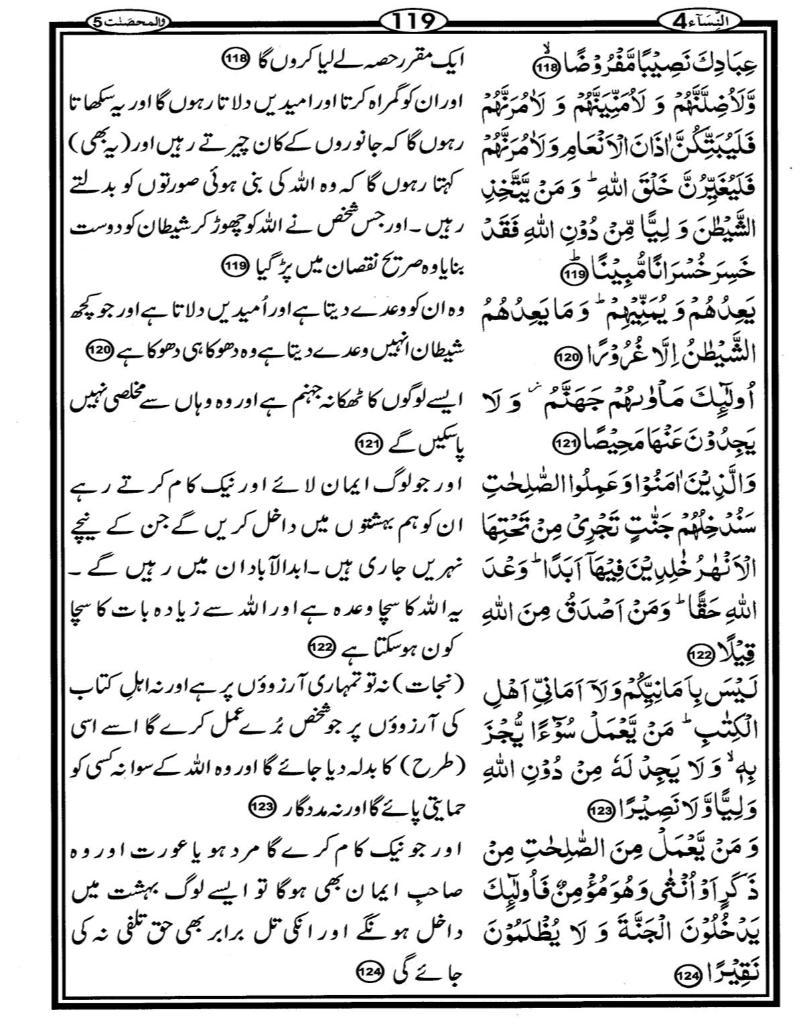 النِّسَآء 4
119
والمحصنٰت 5
عِبَادِكَ نَصِيْبًا مَّفْرُوْضًا ۙ 118
وَّلَاُضِلَّنَّهُمْ وَ لَاُمَنِّيَنَّهُمْ وَ لَاٰمُرَنَّهُمْ
فَلَيُبَتِّكُنَّ اٰذَانَ الْاَنْعَامِ وَلَاٰمُرَنَّهُمْ
فَلَيُغَيِّرُنَّ خَلْقَ اللهِ ؕ وَ مَنْ يَّتَّخِذِ
الشَّيْطٰنَ وَ لِيًّا مِّنْ دُوْنِ اللهِ فَقَدْ
خَسِرَ خُسْرَانًا مُّبِيْنًا ؕ 119
يَعِدُهُمْ وَ يُمَنِّيْهِمْ ؕ وَ مَا يَعِدُهُمُ
الشَّيْطٰنُ اِلَّا غُرُوْرًا 120
اُولٰٓئِكَ مَاْوٰىهُمْ جَهَنَّمُ ۫ وَ لَا
يَجِدُوْنَ عَنْهَا مَحِيْصًا 121
وَالَّذِيْنَ اٰمَنُوْا وَ عَمِلُوا الصّٰلِحٰتِ
سَنُدْخِلُهُمْ جَنّٰتٍ تَجْرِيْ مِنْ تَحْتِهَا
الْاَنْهٰرُ خٰلِدِيْنَ فِيْهَاۤ اَبَدًا ؕ وَعْدَ
اللهِ حَقًّا ؕ وَمَنْ اَصْدَقُ مِنَ اللهِ
قِيْلًا 122
لَيْسَ بِاَمَانِيِّكُمْ وَلَاۤ اَمَانِيِّ اَهْلِ
الْكِتٰبِ ؕ مَنْ يَّعْمَلْ سُوْٓءًا يُّجْزَ
بِهٖ ۙ وَ لَا يَجِدْ لَهٗ مِنْ دُوْنِ اللهِ
وَلِيًّا وَّ لَا نَصِيْرًا 123
وَ مَنْ يَّعْمَلْ مِنَ الصّٰلِحٰتِ مِنْ
ذَكَرٍ اَوْ اُنْثٰى وَهُوَ مُؤْمِنٌ فَاُولٰٓئِكَ
يَدْخُلُوْنَ الْجَنَّةَ وَ لَا يُظْلَمُوْنَ
نَقِيْرًا 124
ایک مقرر حصہ لے لیا کروں گا 118
اور ان کو گمراہ کرتا اور امیدیں دلاتا رہوں گا اور یہ سکھاتا
رہوں گا کہ جانوروں کے کان چیرتے رہیں اور (یہ بھی)
کہتا رہوں گا کہ وہ اللہ کی بنی ہوئی صورتوں کو بدلتے
رہیں۔ اور جس شخص نے اللہ کو چھوڑ کر شیطان کو دوست
بنایا وہ صریح نقصان میں پڑ گیا 119
وہ ان کو وعدے دیتا ہے اور اُمیدیں دلاتا ہے اور جو کچھ
شیطان انہیں وعدے دیتا ہے وہ دھوکا ہی دھوکا ہے 120
ایسے لوگوں کا ٹھکانہ جہنم ہے اور وہ وہاں سے مخلصی نہیں
پا سکیں گے 121
اور جو لوگ ایمان لائے اور نیک کام کرتے رہے
ان کو ہم بہشتوں میں داخل کریں گے جن کے نیچے
نہریں جاری ہیں۔ ابدالآباد ان میں رہیں گے۔
یہ اللہ کا سچا وعدہ ہے اور اللہ سے زیادہ بات کا سچا
کون ہو سکتا ہے 122
(نجات) نہ تو تمہاری آرزوؤں پر ہے اور نہ اہلِ کتاب
کی آرزوؤں پر جو شخص بُرے عمل کرے گا اسے اسی
(طرح) کا بدلہ دیا جائے گا اور وہ اللہ کے سوا نہ کسی کو
حمایتی پائے گا اور نہ مددگار 123
اور جو نیک کام کرے گا مرد ہو یا عورت اور وہ
صاحبِ ایمان بھی ہوگا تو ایسے لوگ بہشت میں
داخل ہونگے اور انکی تل برابر بھی حق تلفی نہ کی
جائے گی 124